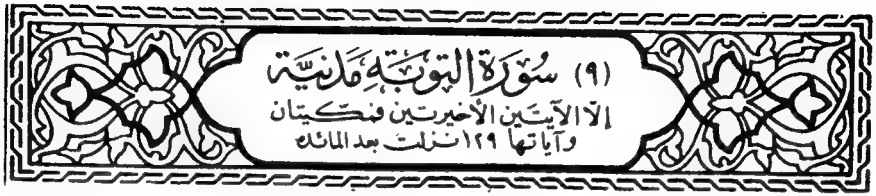 (٩) سُورَةُ التوبَةِ مَدَنيَّة
إلّا الآيَتَين الأخيرتَين فمكيّتان
وَآياتها ١٢٩ نزلت بعد المائده